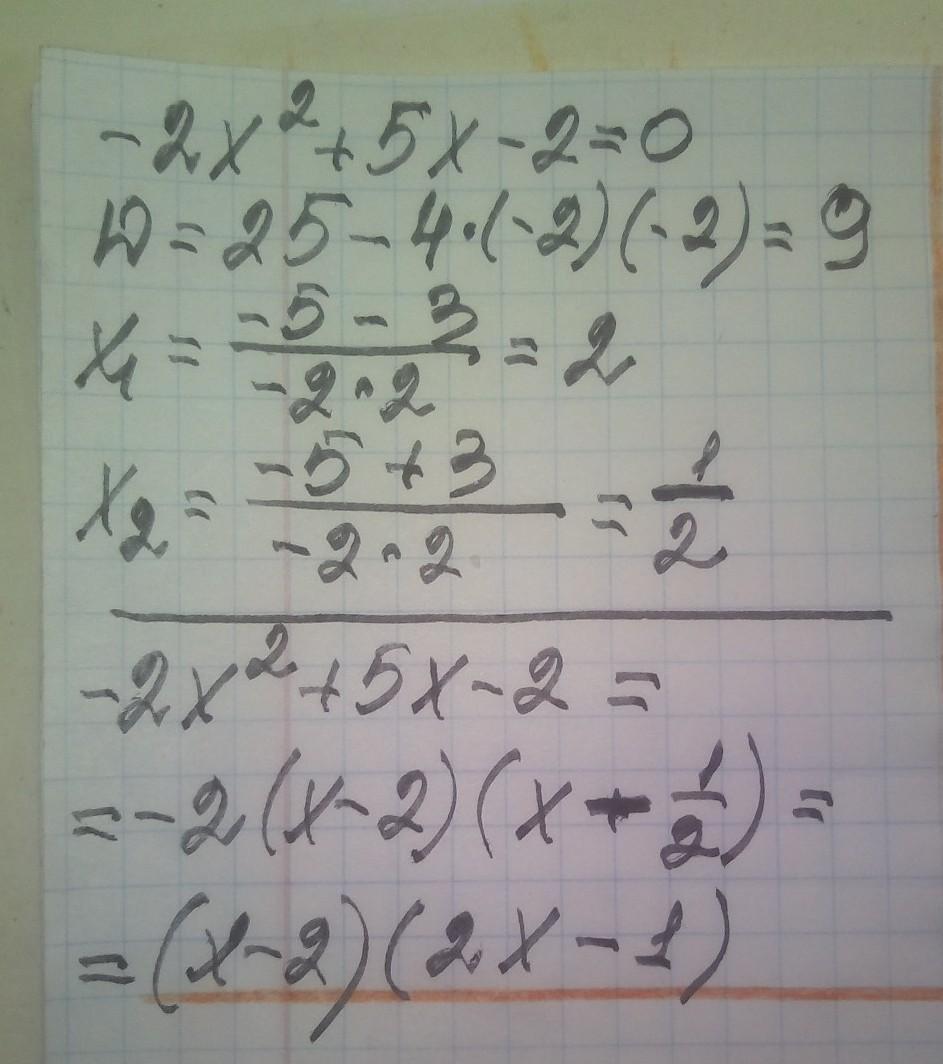 -2x²+5x-2=0
D=25-4·(-2)(-2)=9
x₁=\frac{-5-3}{-2·2}=2
x₂=\frac{-5+3}{-2·2}=\frac{1}{2}
-2x²+5x-2=
=-2(x-2)(x-\frac{1}{2})=
=(x-2)(2x-1)